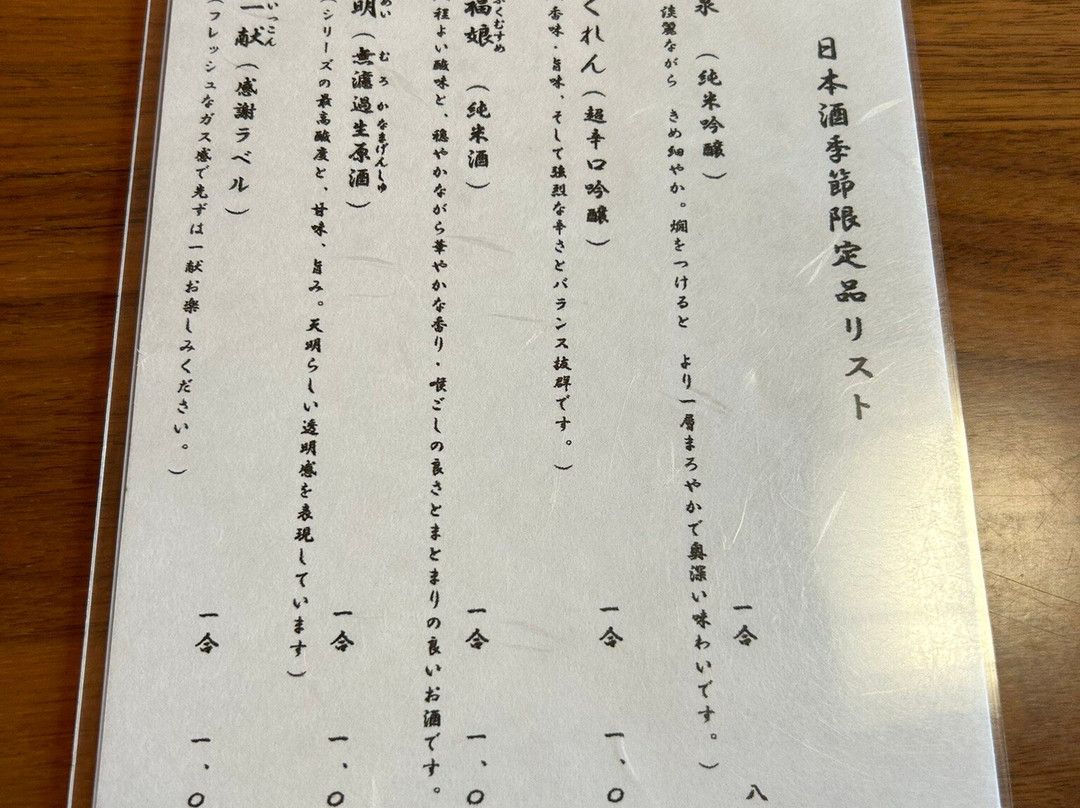 日本酒季節限定品リスト
泉（純米吟醸） 一合 八
淡麗ながら きめ細やか。燗をつけると より一層まろやかで奥深い味わいです。）
くれん（超辛口吟醸） 一合 一、〇
香味・旨味、そして強烈な辛さとバランス抜群です。）
ふくむすめ
福娘（純米酒） 一合 一、〇
程よい酸味と、穏やかながら華やかな香り・喉ごしの良さとまとまりの良いお酒です。
めい むろかなまげんしゅ
明（無濾過生原酒） 一合 一、〇
（シリーズの最高酸度と、甘味、旨み。天明らしい透明感を表現しています）
いっこん
一献（感謝ラベル） 一合 一、〇
（フレッシュなガス感で先ずは一献お楽しみください。）